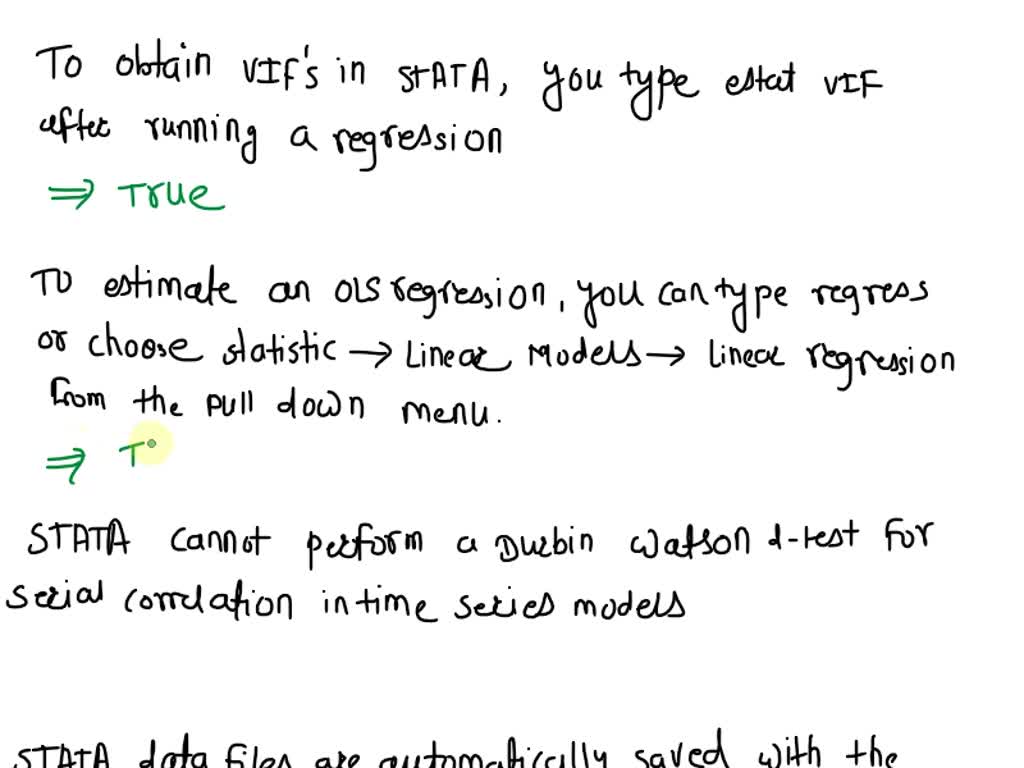 To obtain VIF's in STATA, you type estat VIF
after running a regression
⇒ True
To estimate an OLS regression, you can type regress
or choose statistic → Linear Models → Linear regression
from the pull down menu.
⇒ T
STATA cannot perform a Durbin Watson d-test For
serial correlation in time series models
STATA data files are automatically saved with the